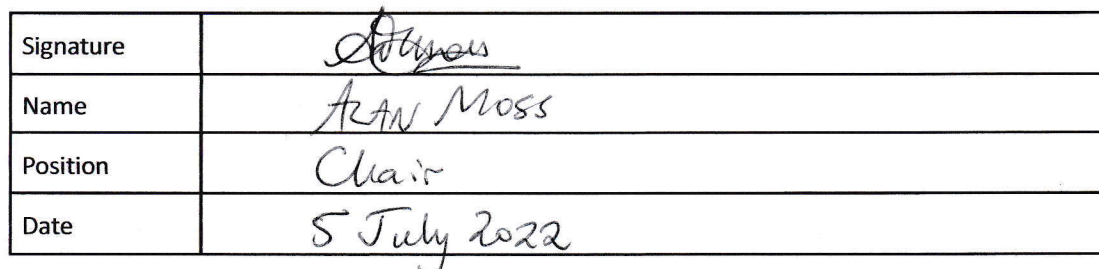 Signature
Name ALAN MOSS
Position Chair
Date 5 July 2022